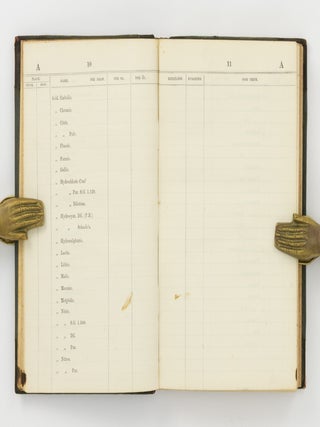 A 10 11 A
PLACE. NAME. PER DRAM. PER OZ. PER lb.
Acid. Carbolic.
„ Chromic.
„ Citric.
„ „ Pulv.
„ Fluoric.
„ Formic.
„ Gallic.
„ Hydrochloric Coml
„ „ Pur. S.G. 1.160.
„ „ Dilutum.
„ Hydrocyan. Dil. (P.B.)
„ „ Scheele's.
„ Hydrosulphuric.
„ Lactic.
„ Lithic.
„ Malic.
„ Meconic.
„ Molybdic.
„ Nitric.
„ „ S.G. 1.500.
„ „ Dil.
„ „ Pur.
„ Nitros.
„ „ Pur.